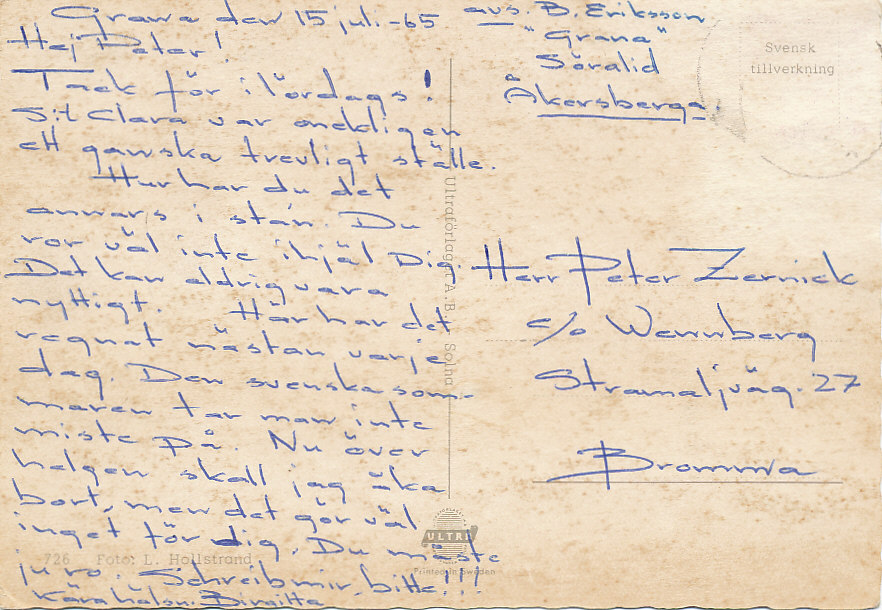 Grana den 15 juli -65
Hej Peter!
Tack för i lördags!
S:t Clara var onekligen
ett ganska trevligt ställe.
Hur har du det
annars i stan. Du
ror väl inte ihjäl Dig.
Det kan aldrig vara
nyttigt. Här har det
regnat nästan varje
dag. Den svenska som-
maren tar man inte
miste på. Nu över
helgen skall jag åka
bort, men det gör väl
inget för dig. Du måste
ju ro. Schreib mir, bitte!!!
Kära hälsn. Birgitta
avs. B. Eriksson
"Grana"
Söralid
Åkersberga.
Svensk
tillverkning
Herr Peter Zernick
c/o Wennberg
Stramaljväg. 27
Bromma
Ultraförlaget A.B. Solna
726 Foto: L. Hollstrand
ULTRA
Printed in Sweden